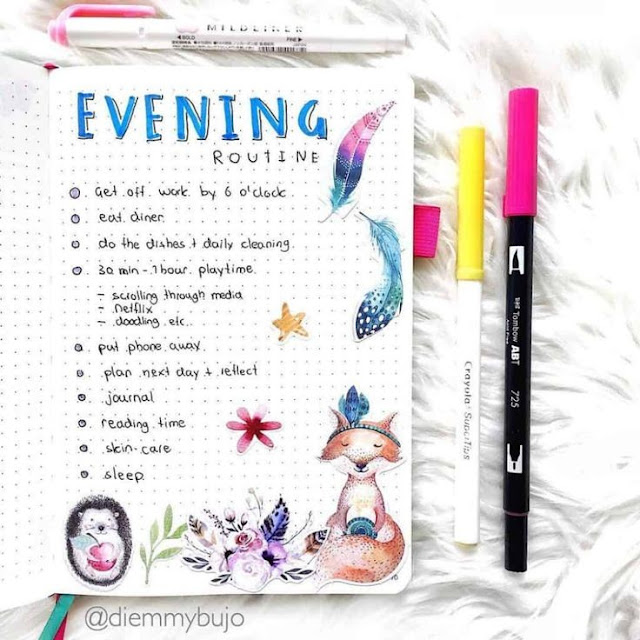 MILDLINER
BOLD
FINE
EVENING
ROUTINE
Get off work by 6 o'clock
eat diner
do the dishes + daily cleaning
30 min - 1 hour playtime
- scrolling through media
- netflix
- doodling etc.
put phone away
plan next day + reflect
journal
reading time
skin-care
sleep
Crayola SuperTips
Tombow ABT
725
@diemmybujo